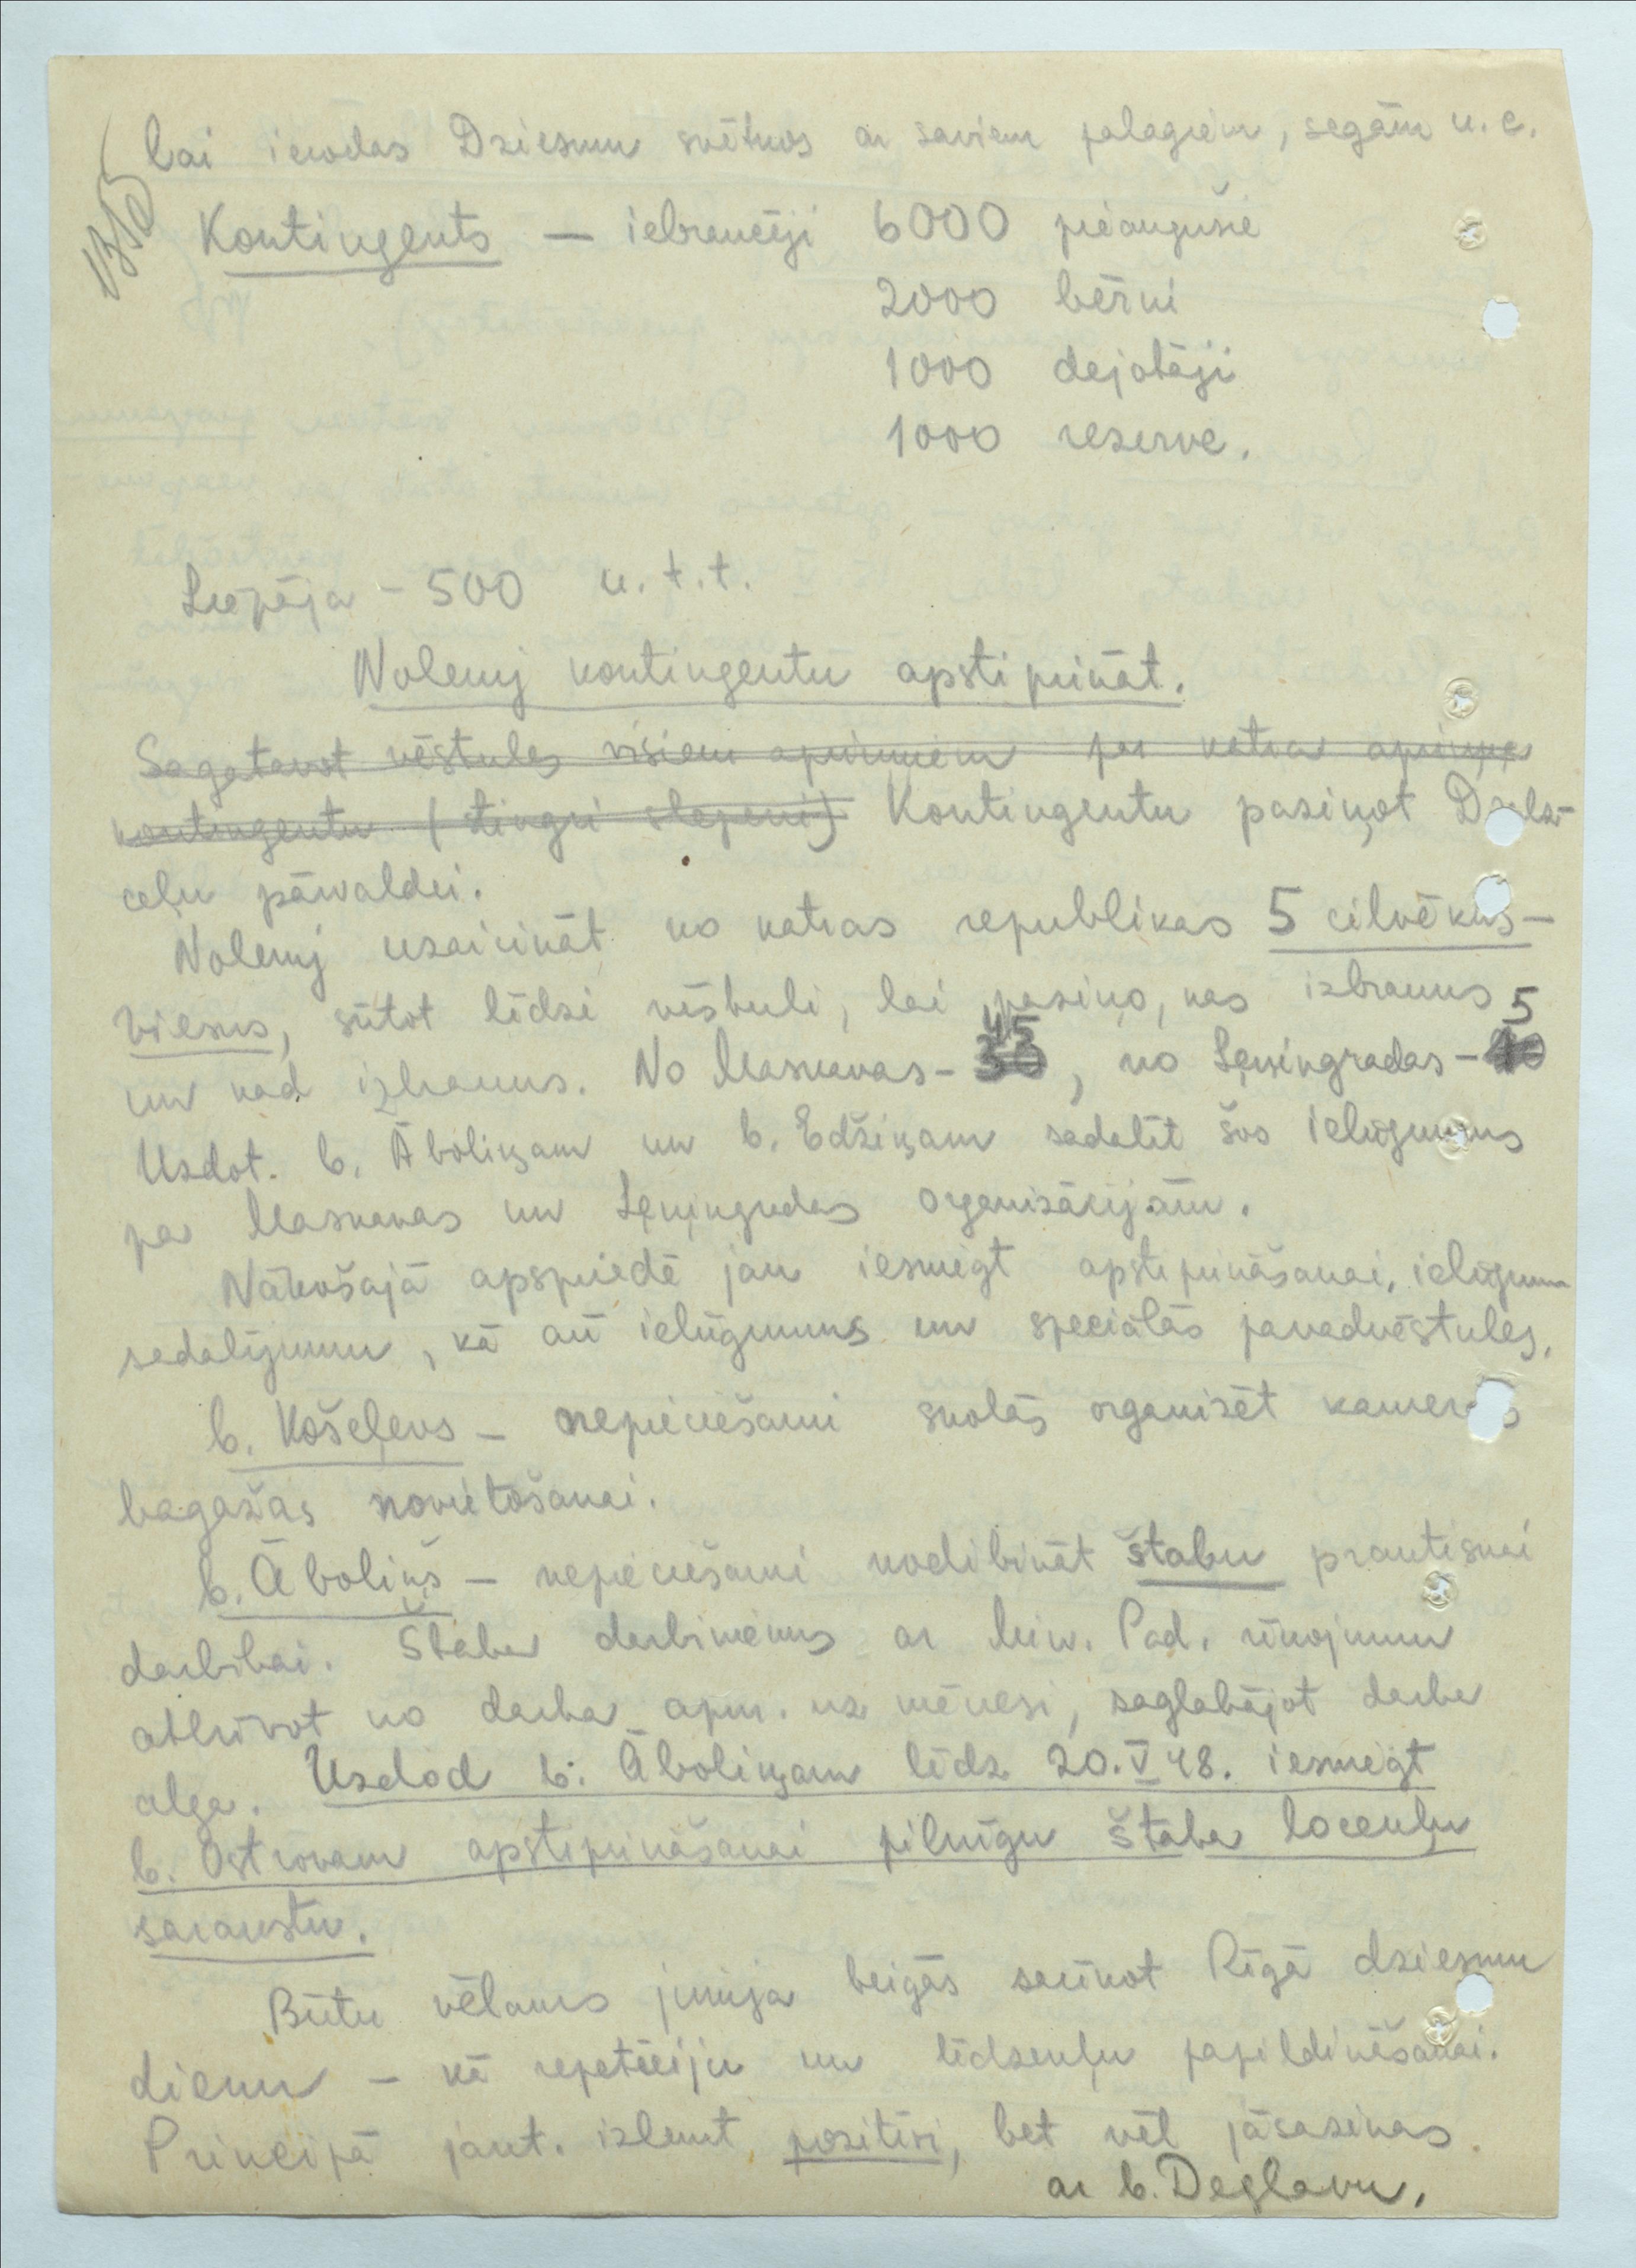 lai ierodas Dziesmu svētkos ar saviem palagiem, segām u.c.
Kontingents — iebraucēji 6000 pieaugušie
2000 bērni
1000 dejotāji
1000 reserve.
Liepāja - 500 u.t.t.
Nolemj kontingentu apstiprināt.
Sagatavot vēstules visiem apriņķiem par katra apriņķa
kontingentu (stingri slepeni) Kontingentu paziņot Dzelz-
ceļu pārvaldei.
Nolemj uzaicināt no katras republikas 5 cilvēkus -
viesus, sūtot līdzi vēstuli, lai paziņo, kas izbrauks
un kad izbrauks. No Maskavas - 45, no Ļeņingradas - 5
Uzdot. b. Āboliņam un b. Edžiņam sadalīt šos ielūgumus
pa Maskavas un Ļeņingradas organizācijām.
Nākošajā apspriedē jau iesniegt apstiprināšanai, ielūgumu
sadalījumu, kā arī ielūgumus un speciālās pavadvēstules,
b. Košeļevs - nepieciešami skolās organizēt kameras
bagāžas novietošanai.
b. Āboliņš - nepieciešami nodibināt štabu praktiskai
darbībai. Štaba darbiniekus ar Min. Pad. rīkojumu
atbrīvot no darba apm. uz mēnesi, saglabājot darba
alga. Uzdod b. Āboliņam līdz 20.V 48. iesniegt
b. Ostrovam apstiprināšanai pilnīgu štaba locekļu
sarakstu.
Būtu vēlams jūnija beigās sarīkot Rīgā dziesmu
dienu - kā repetīciju un līdzekļu papildināšanai.
Principā jaut. izlemt pozitīvi, bet vēl jāsazinas
ar b. Deglavu.